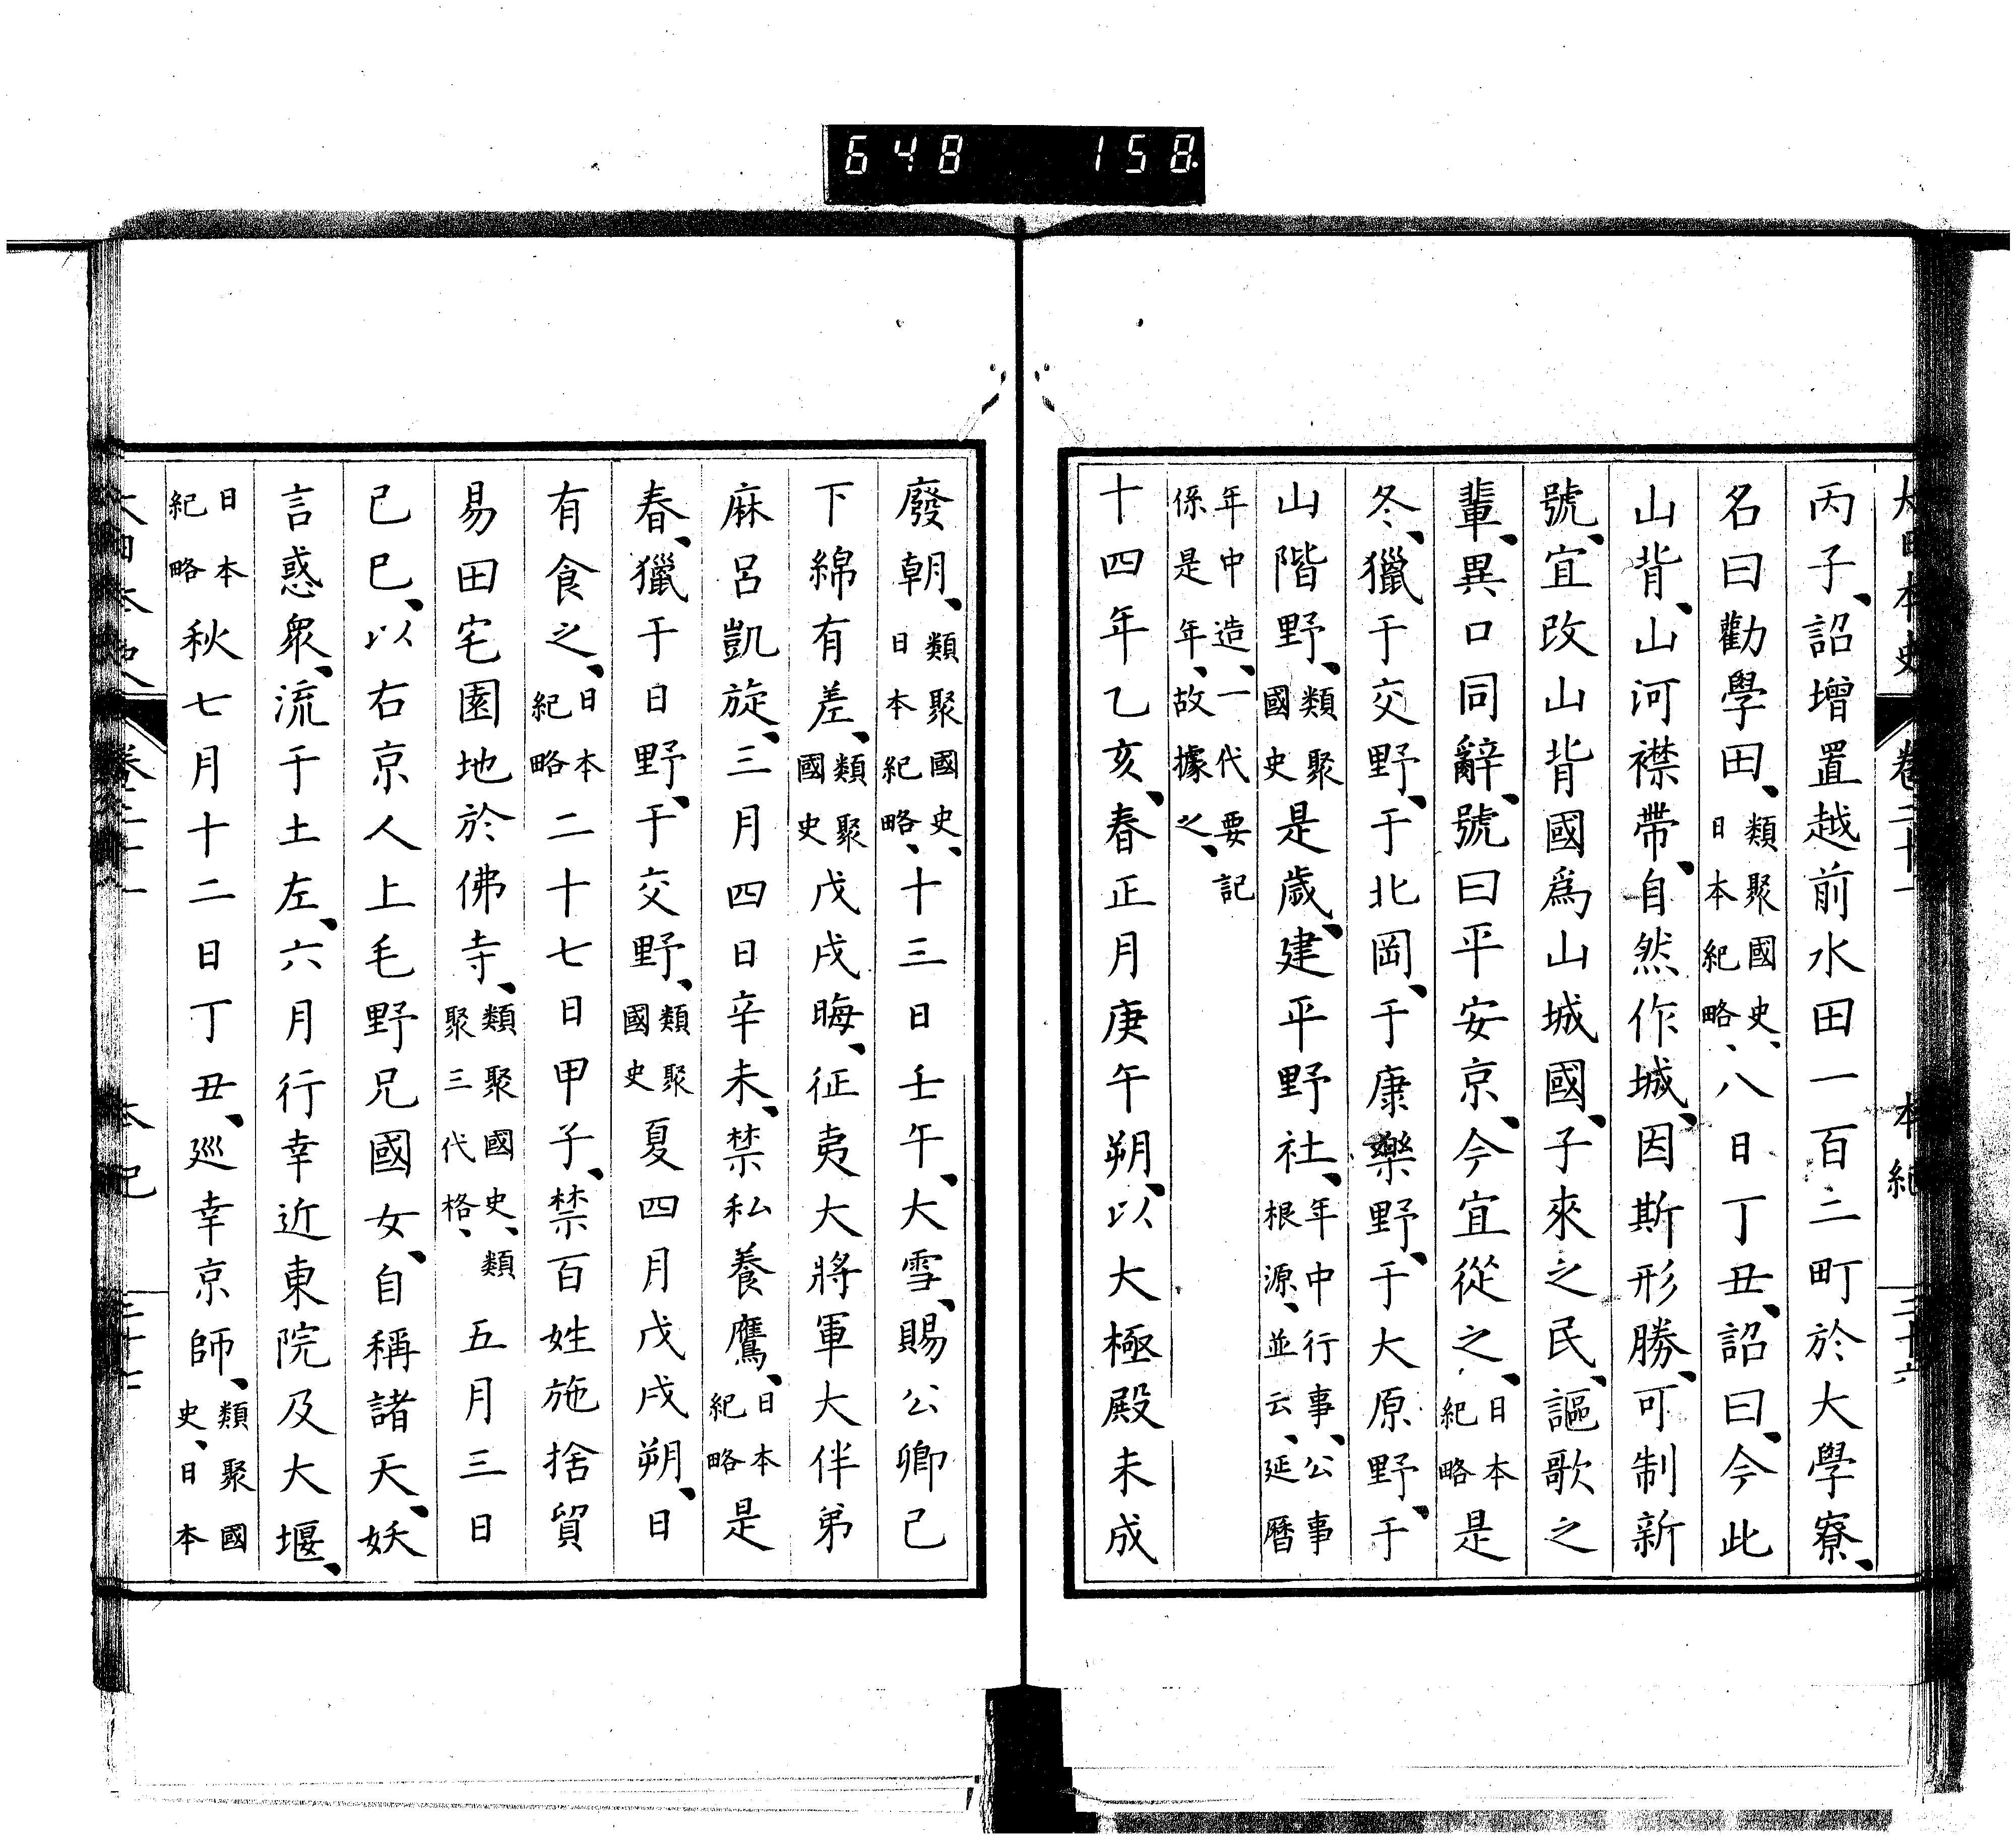 648 158
大日本史 卷二十一 本紀 三十六
丙子、詔增置越前水田一百二町於大學寮、
名曰勸學田、類聚國史、日本紀略、八日丁丑、詔曰、今此
山背、山河襟帶、自然作城、因斯形勝、可制新
號、宜改山背國爲山城國、子來之民、謳歌之
輩、異口同辭、號曰平安京、今宜從之、日本紀略是
冬、獵于交野、于北岡、于康樂野、于大原野、于
山階野、類聚國史是歲、建平野社、年中行事、公事根源、並云、延曆
年中造、一代要記係是年、故據之、
十四年乙亥、春正月庚午朔、以大極殿未成
廢朝、類聚國史、日本紀略、十三日壬午、大雪、賜公卿已
下綿有差、類聚國史戊戌晦、征夷大將軍大伴弟
麻呂凱旋、三月四日辛未、禁私養鷹、日本紀略是
春、獵于日野、于交野、類聚國史夏四月戊戌朔、日
有食之、日本紀略二十七日甲子、禁百姓施捨貿
易田宅園地於佛寺、類聚國史、類聚三代格、五月三日
己巳、以右京人上毛野兄國女、自稱諸天、妖
言惑衆、流于土左、六月行幸近東院及大堰、
日本紀略秋七月十二日丁丑、巡幸京師、類聚國史、日本